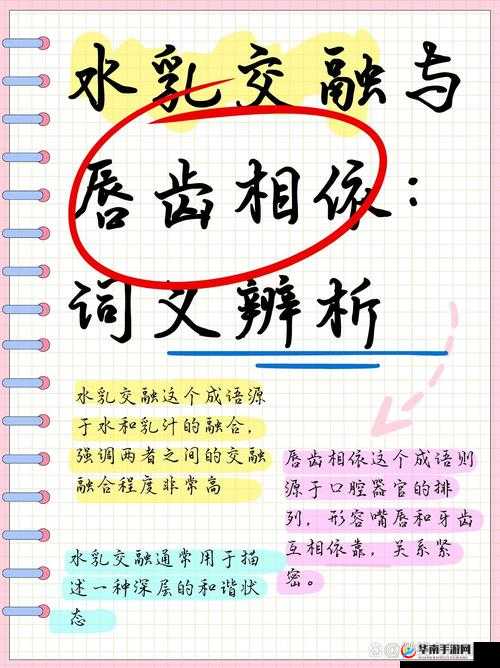 水乳交融与
唇齿相依：
词义辨析
水乳交融这个成语源
于水和乳汁的融合，
强调两者之间的交融
融合程度非常高
唇齿相依这个成语则
源于口腔器官的排
列，形容嘴唇和牙齿
互相依靠，关系紧
密。
水乳交融通常用于描
述一种深层的和谐状
态
华南手游网